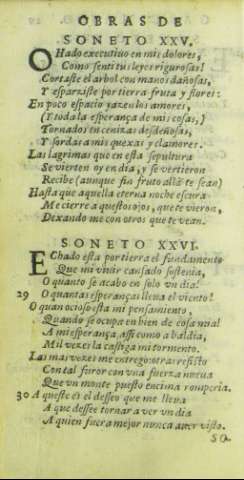 OBRAS DE
SONETO XXV.
O Hado executiuo en mis dolores,
Como senti tus leyes rigurosas!
Cortaste el arbol con manos dañosas,
Y esparziste por tierra fruta y flores:
En poco espacio yazen los amores,
(Y toda la esperança de mis cosas,)
Tornados en cenizas desdeñosas,
Y sordas a mis quexas y clamores.
Las lagrimas que en esta sepultura
Se vierten oy en dia, y se vertieron
Recibe (aunque sin fruto allà te sean)
Hasta que aquella eterna noche escura
Me cierre aquestos ojos, que te vieron,
Dexando me con otros que te vean.
SONETO XXVI.
Echado esta por tierra el fundamento
Que mi viuir cansado sostenia,
O quanto se acabo en solo vn dia!
29 O quantas esperanças lleua el viento!
O quan ocioso esta mi pensamiento,
Quando se ocupa en bien de cosa mia!
A mi esperança assi como a baldia,
Mil vezes la castiga mi tormento.
Las mas vezes me entrego: otras resisto
Con tal furor con vna fuerza nueua
Que vn monte puesto encima romperia.
30 A queste es el desseo que me lleua
A que dessee tornar a ver vn dia
A quien fuera mejor nunca auer visto.
SO.